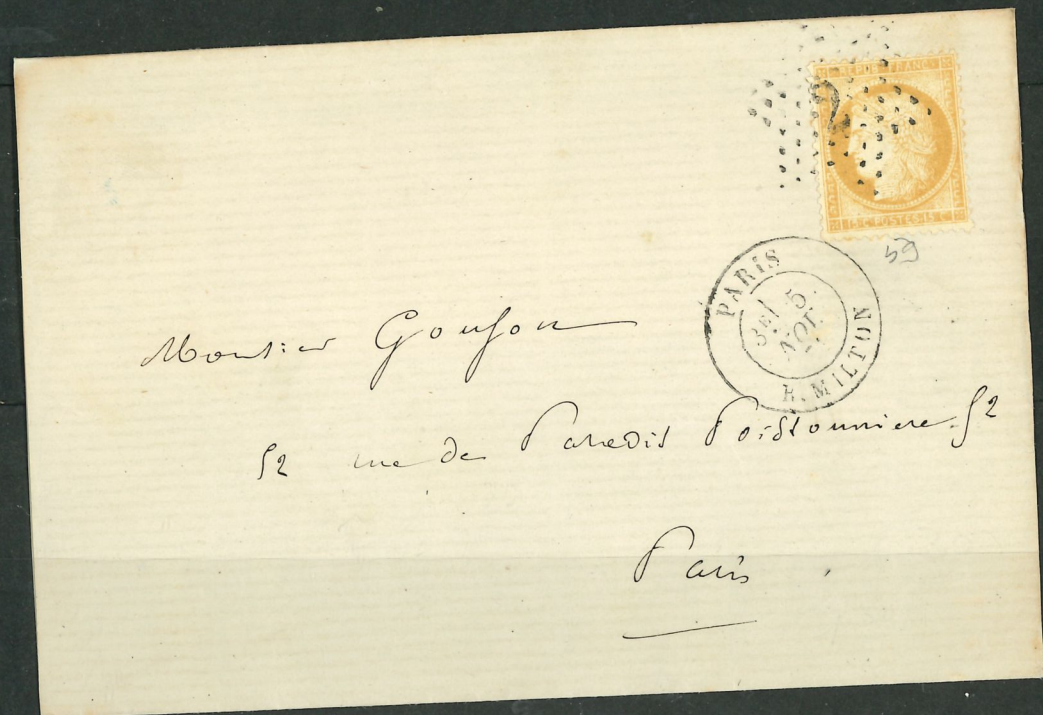 REPUB · FRANC ·
2
15 C · POSTES · 15 C
59
PARIS
3E/ 5
AOU.
R. MILTON
Monsieur Goujon
52 rue de Paradis Poissonniere 52
Paris